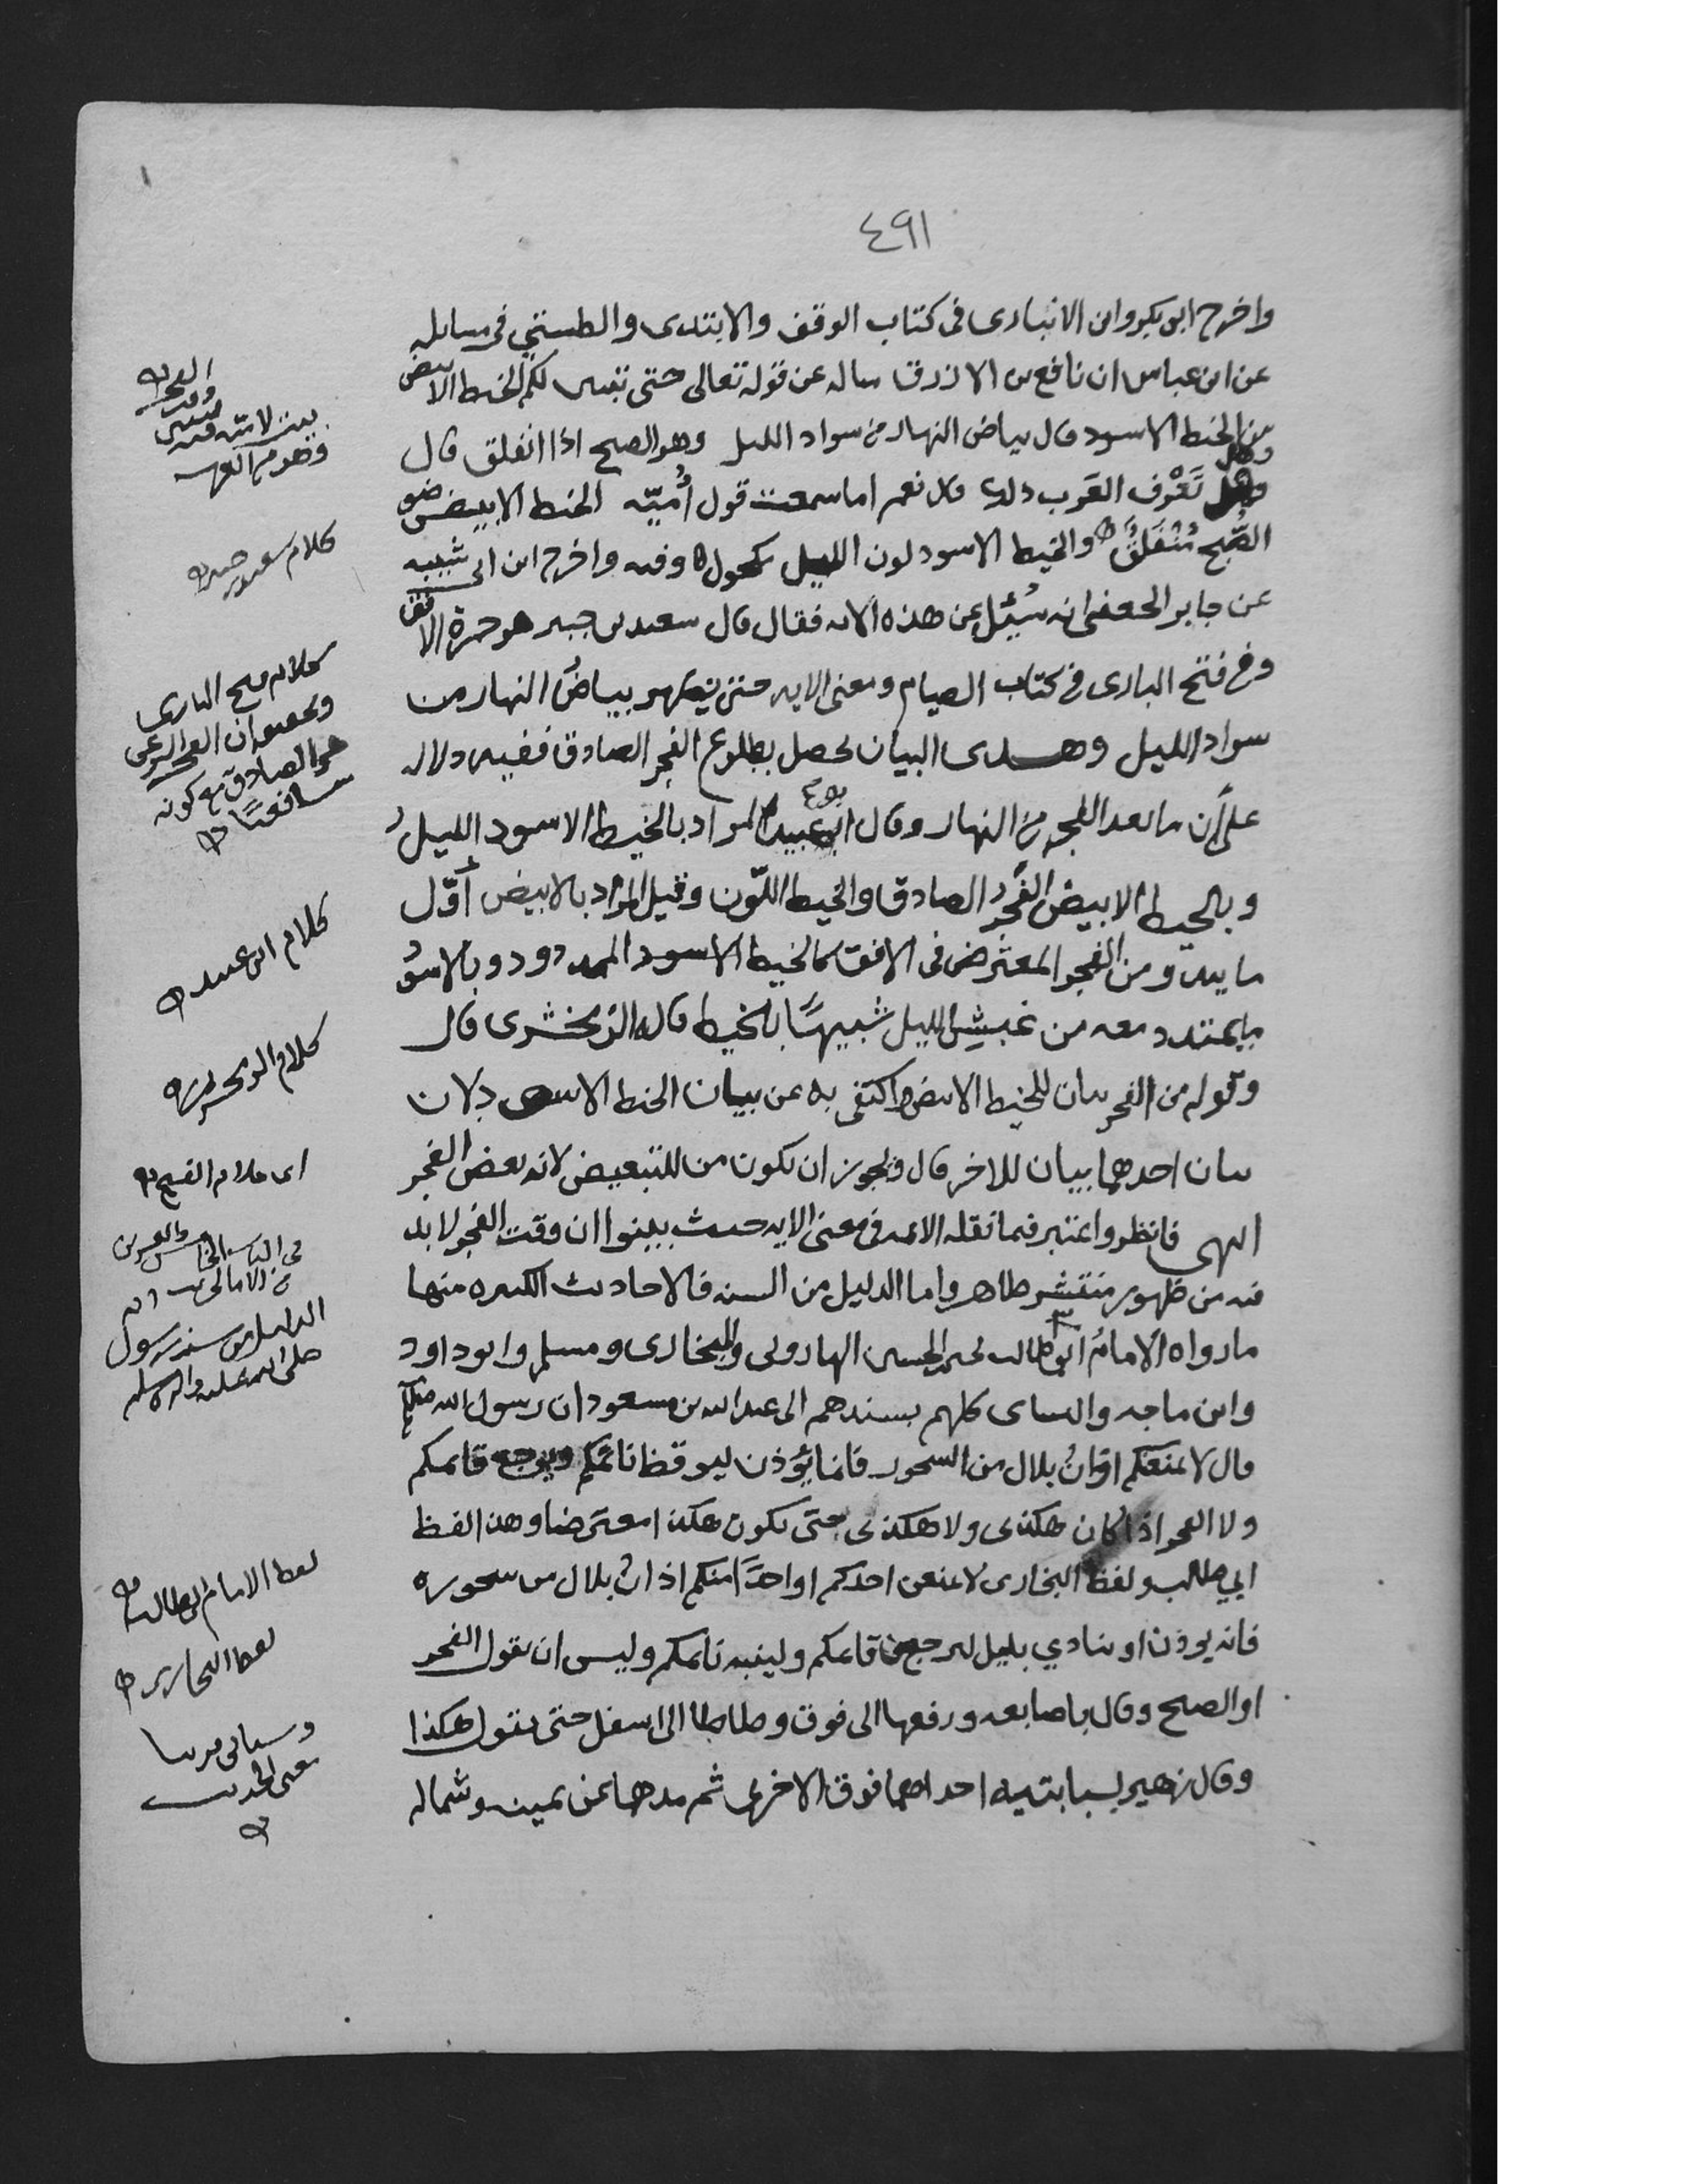 ٤٩١
واخرج ابن بكر وابن الانبارى فى كتاب الوقف والابتدى والطستي فى مسايله
عن ابن عباس ان نافع بن الازرق ساله عن قوله تعالى حتى تبين لكم الخيط الابيض
من الخيط الاسود قال بياض النهار من سواد الليل وهو الصبح اذا انفلق قال
وهل تَعْرف العَرب ذلك قال نعم اما سمعت قول أُميّه الخيط الابيض ضو
الصُّبح مُنْفلقٌ والخيط الاسود لون الليل مكمول وفيه واخرج ابن ابى شيبه
عن جابر الجعفى انه سُئِل عن هذه الايه فقال قال سعيد بن جبير هو حمرة الافق
وفى فتح البارى فى كتاب الصيام ومعنى الايه حتى يظهر بياضُ النهار من
سواد الليل وهذى البيان يحصل بطلوع الفجر الصادق ففيه دلاله
على أن ما بعد الفجر من النهار وقال ابو عبيد المراد بالخيط الاسود الليلُ
وبالخيط الابيض الفَجرُ الصادق والخيط اللّون وقيل المراد بالابيض أوّل
ما يبدو من الفجر المعترض فى الافق كالخيط الاسود الممدود وبالاسود
ما يمتد معه من غبشِ الليل شبيهًا بالخيط قاله الزمخشرى قال
وقوله من الفجر بيان للخيط الابيض واكتفى به عن بيان الخيط الاسود لان
بيان احدهما بيان للاخر قال ويجوز ان يكون من للتبعيض لانه بعض الفجر
انتهى فانظر واعتبر فيما نقله الائمه فى معنى الايه حيث بينوا ان وقت الفجر لا بد
فيه من ظهور منتشر ظاهر واما الدليل من السنه فالاحاديث الكثيره منها
ما رواه الامامُ ابو طالب يحيى بن الحسين الهارونى والبخارى ومسلم وابو داود
وابن ماجه والنساى كلهم بسندهم الى عبد الله بن مسعود ان رسول الله صلعم
قال لا يمنعكم اذانُ بلال من السحور فانما يؤذن ليوقظ نائمكم ويرجع قائمكم
ولا الفجر اذا كان هكذى ولا هكذى حتى يكون هكذا معترضا وهذا لفظ
ابي طالب ولفظ البخارى لا يمنعن احدكم او احدًا منكم اذانُ بلال من سحوره
فانه يوذن او ينادي بليل ليرجع قائمكم ولينبه نائمكم وليس ان يقول الفجر
او الصبح وقال باصابعه ورفعها الى فوق وطاطا الى اسفل حتى يقول هكذا
وقال زهير بسبابتيه احداهما فوق الاخرى ثم مدها عن يمينه وشماله
كلام سعيد بن جبير
كلام فتح البارى
هو الصادق مع كونه
شافعيًا
كلام ابى عبيد
كلام الزمخشرى
اى كلام الفتح
فى الباب الخامس والعشرين
من الامالى
الدليل من سنة رسول
صلى الله عليه واله وسلم
لفظ الامام ابو طالب
لفظ البخارى
وسياتى قريبا
معنى الحديث